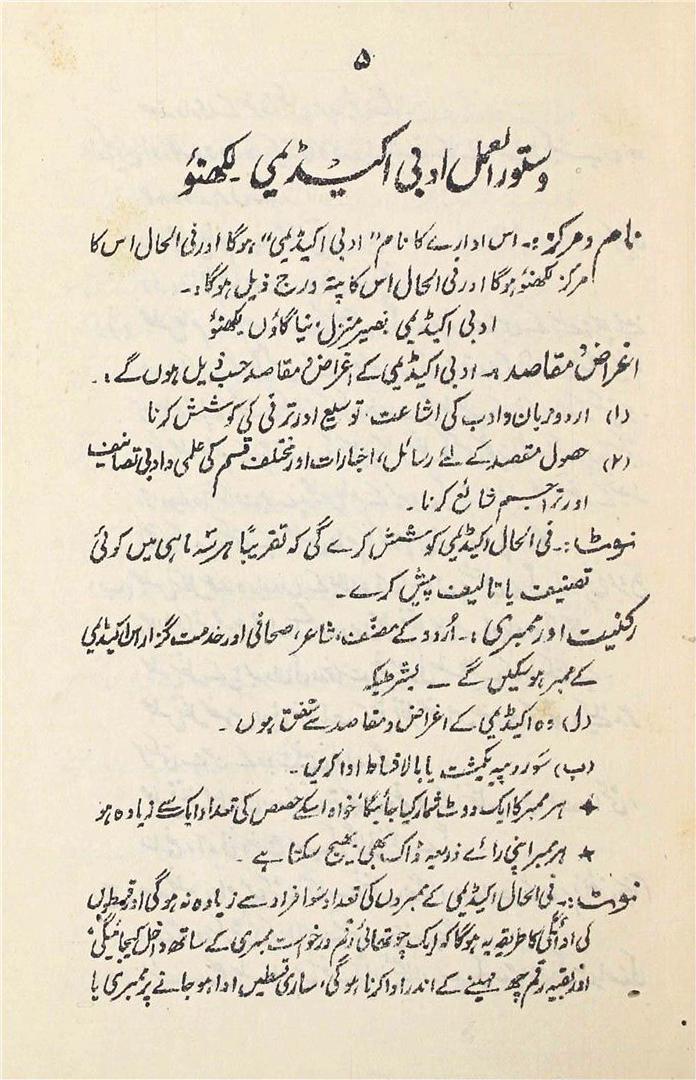 ۵
دستور العمل ادبی اکیڈیمی لکھنؤ
نام و مرکز:۔ اس ادارے کا نام "ادبی اکیڈیمی" ہوگا اور فی الحال اس کا
مرکز لکھنؤ ہوگا اور فی الحال اس کا پتہ درج ذیل ہوگا:۔
ادبی اکیڈیمی نصیر منزل، نیا گاؤں لکھنؤ
اغراض و مقاصد:۔ ادبی اکیڈیمی کے اغراض و مقاصد حسب ذیل ہوں گے:۔
(۱) اردو زبان و ادب کی اشاعت، توسیع اور ترقی کی کوشش کرنا
(۲) حصول مقصد کے لئے رسائل، اخبارات اور مختلف قسم کی علمی و ادبی تصانیف
اور تراجم شائع کرنا۔
نوٹ:۔ فی الحال اکیڈیمی کوشش کرے گی کہ تقریباً ہر سہ ماہی میں کوئی
تصنیف یا تالیف پیش کرے۔
رکنیت اور ممبری:۔ اُردو کے مصنّف، شاعر، صحافی اور خدمت گزار اس اکیڈیمی
کے ممبر ہو سکیں گے ـ بشرطیکہ
(ل) وہ اکیڈیمی کے اغراض و مقاصد سے متفق ہوں۔
(ب) سَو روپیہ یکمشت یا بالاقساط ادا کریں۔
★ ہر ممبر کا ایک ووٹ شمار کیا جائیگا، خواہ اسکے حصص کی تعداد ایک سے زیادہ ہو
★ ہر ممبر اپنی رائے ذریعہ ڈاک بھی بھیج سکتا ہے۔
نوٹ:۔ فی الحال اکیڈیمی کے ممبروں کی تعداد سَو افراد سے زیادہ نہ ہوگی اور قسطوں
کی ادائگی کا طریقہ یہ ہوگا کہ ایک چوتھائی رقم درخواست ممبری کے ساتھ داخل کیجائیگی،
اور بقیہ رقم چھ مہینے کے اندر ادا کرنا ہوگی، ساری قسطیں ادا ہو جانے پر ممبری یا